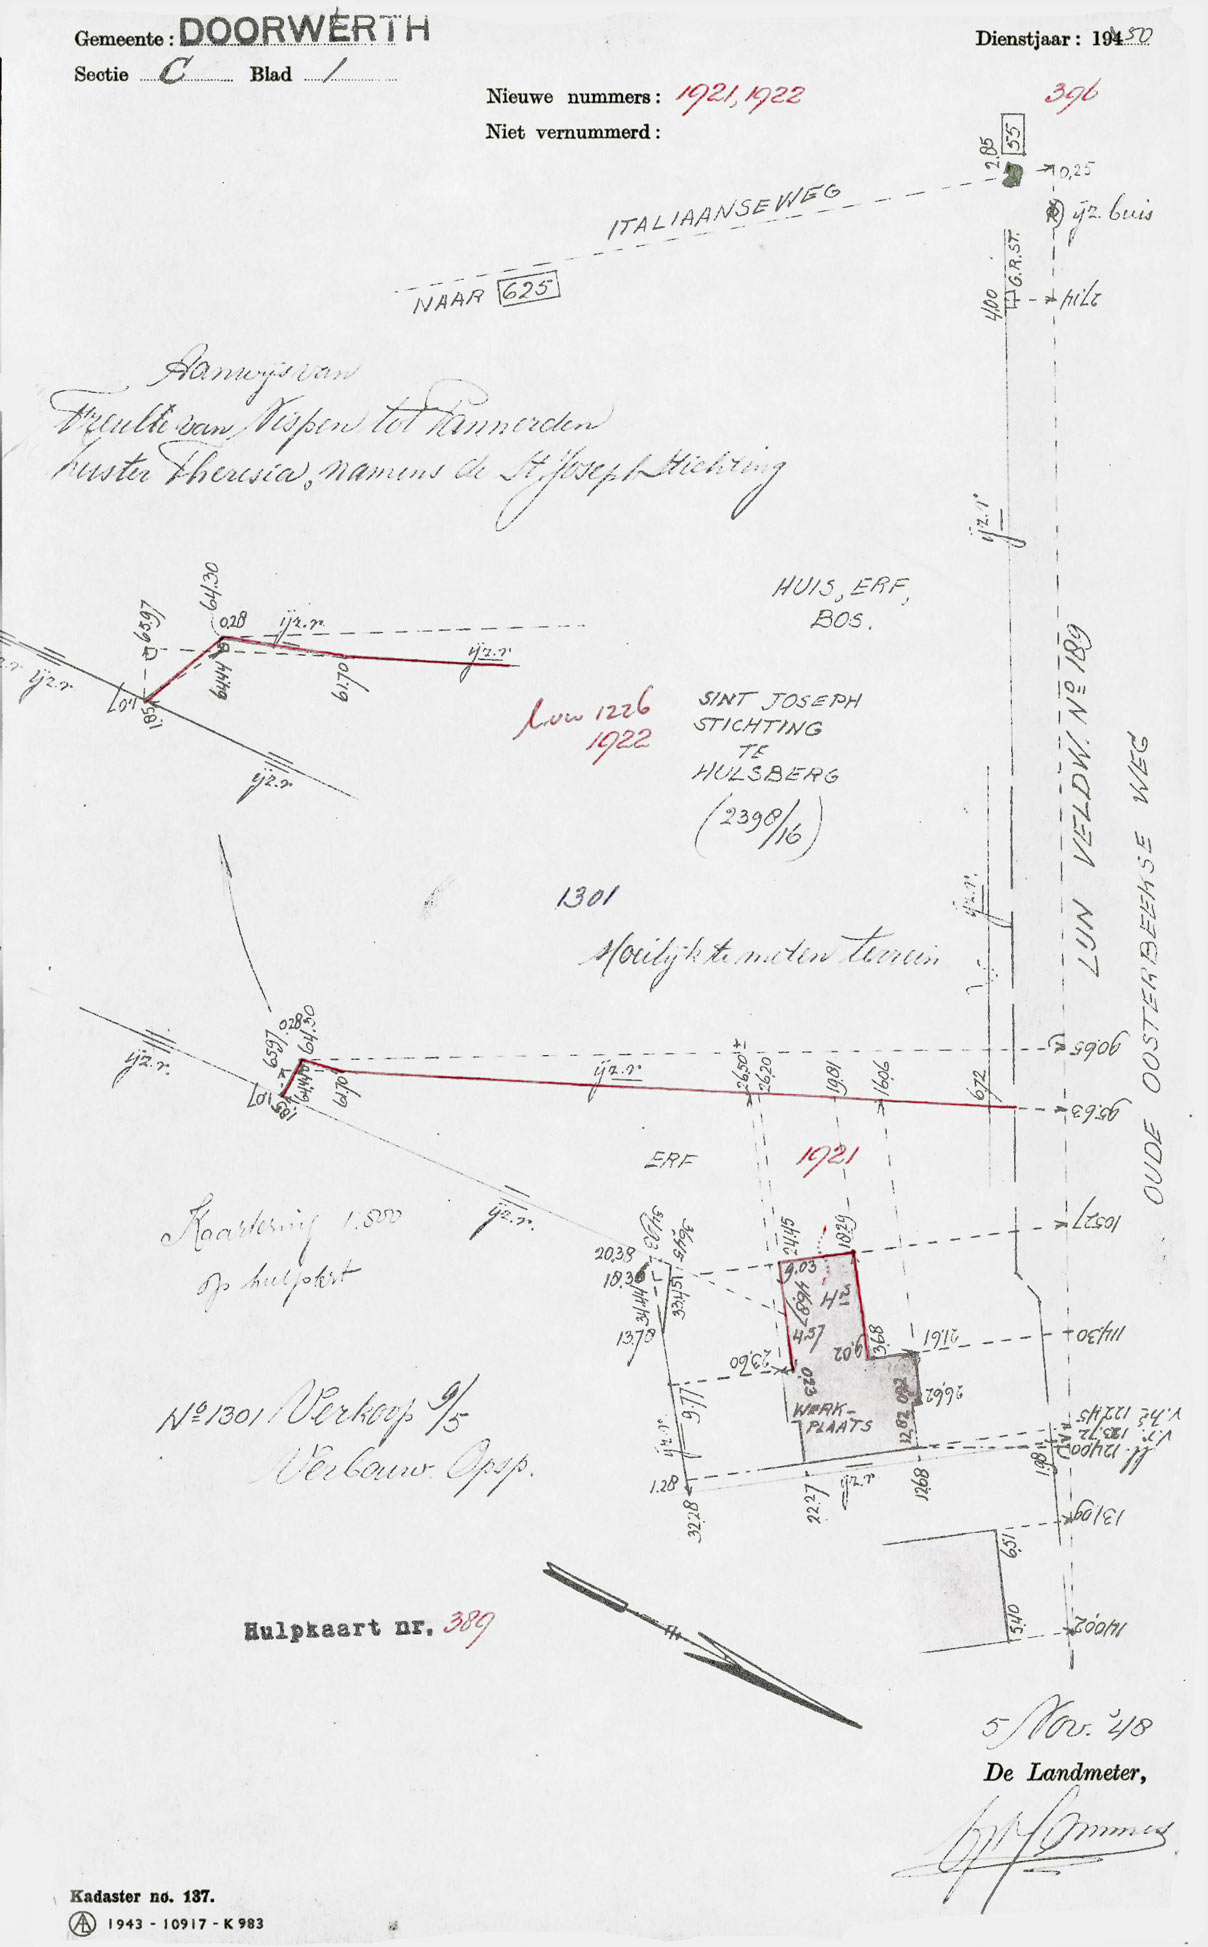 Gemeente: DOORWERTH
Dienstjaar: 194 50
Sectie C Blad 1
Nieuwe nummers: 1921, 1922
396
Niet vernummerd:
55
2.85
0,25
ijz. buis
ITALIAANSEWEG
NAAR 625
G.R.ST.
4.00
27,14
Aanwijs van
Freule van Nispen tot Pannerden
Zuster Theresia, namens de St. Joseph Stichting
ijz.r
HUIS, ERF,
BOS.
65.97
64.30
0.28
ijz.r.
ijz.r
ijz.r
64.44
61.70
1.07
1.85
ijz.r
LIJN VELDW. Nº 189
OUDE OOSTERBEEKSE WEG
1226
1922
SINT JOSEPH
STICHTING
TE
HULSBERG
(2398/16)
1301
ijz.r.
Moeilijk te meten terrein
65.97
0.28
64.30
ijz.r.
1.07
1.85
64.44
61.70
ijz.r.
26.50
26.20
19.01
16.06
6.72
90.65
95.63
ERF
1921
Kaartering 1:500
op hulpkrt
ijz.r.
34.03
36.45
20.38
18.36
34.44
33.45
13.78
24.45
18.29
9.03
46.87
Hs
4.57
9.02
13.68
23.60
0.23
105.27
21.61
114.30
26.62
WERK-
PLAATS
12.82
0.92
9.77
ijz.r
122.45
123.72
124.00
1.98
Nº 1301 Verkoop 9/5
Verbouw. Opsp.
1.28
32.28
22.27
ijz.r
12.68
131.09
6.51
5.40
140.02
Hulpkaart nr. 389
5 Nov. '48
De Landmeter,
Kadaster no. 137.
1943 - 10917 - K 983